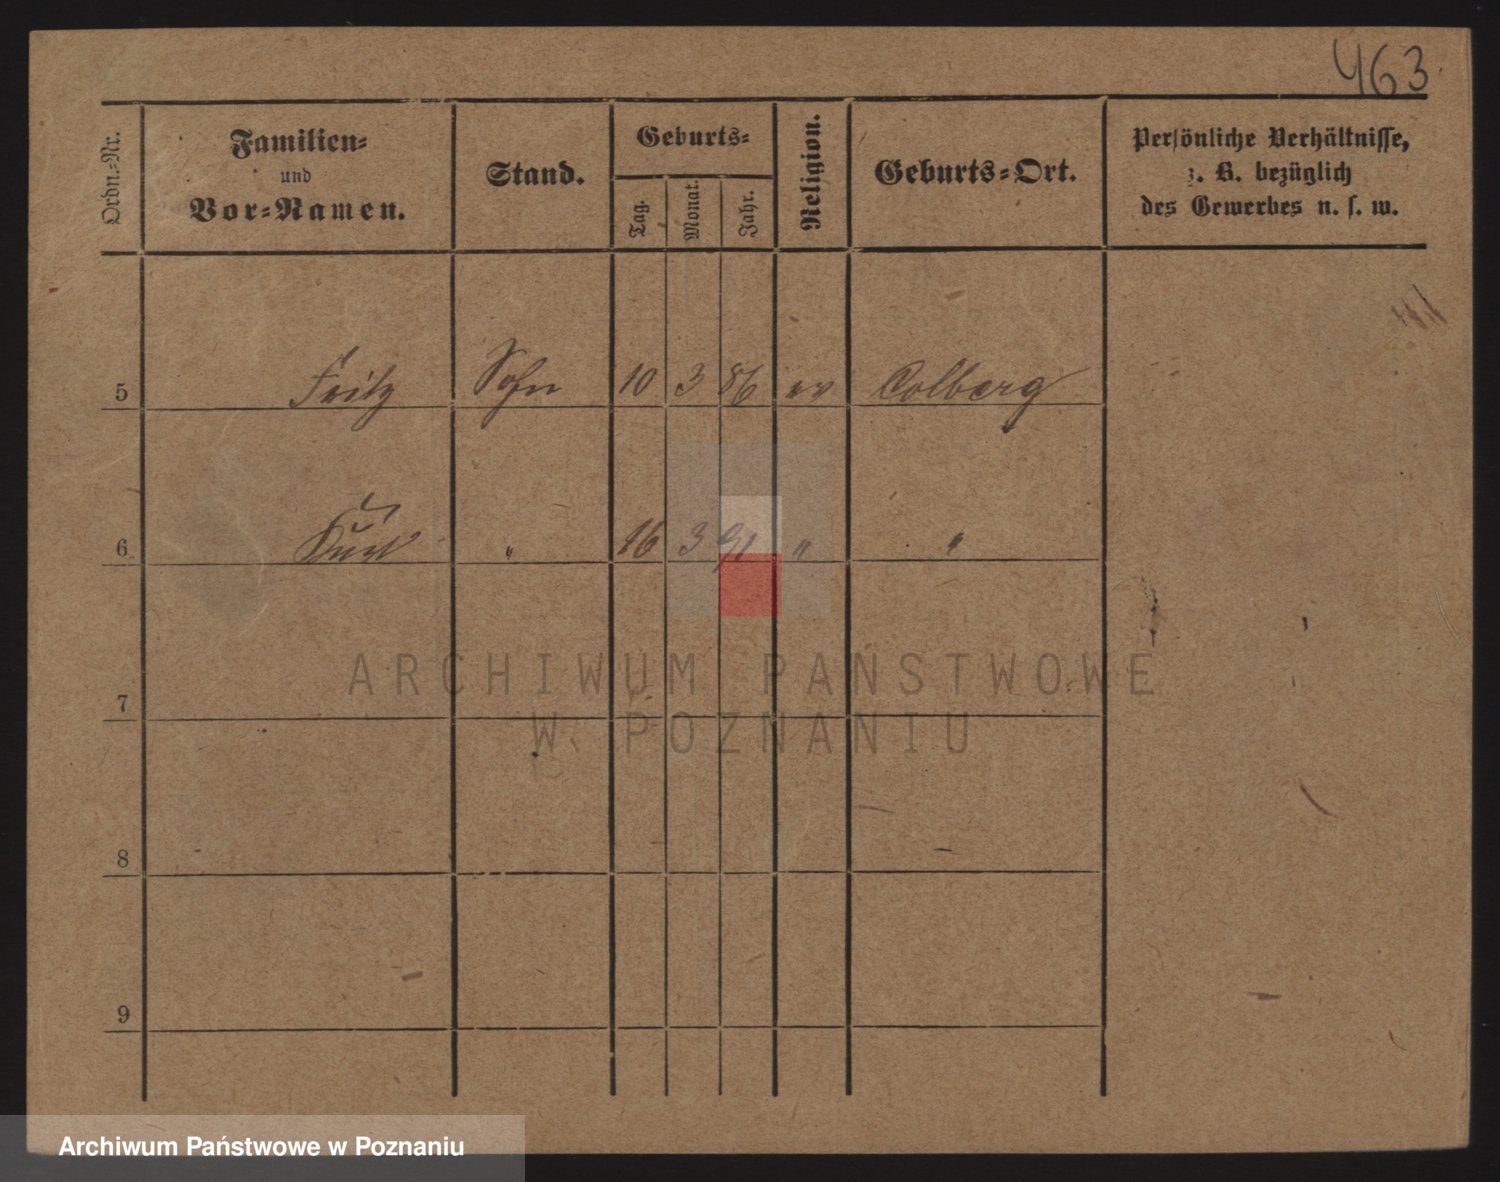 463
Ordn.-Nr.
Familien-
und
Vor-Namen.
Stand.
Geburts-
Tag.
Monat.
Jahr.
Religion.
Geburts-Ort.
Persönliche Verhältnisse,
z. B. bezüglich
des Gewerbes u. s. w.
5 Fritz Sohn 10 3 86 ev Colberg
6 Kurt " 16 3 91 " "
ARCHIWUM PAŃSTWOWE
W POZNANIU
7
8
9
Archiwum Państwowe w Poznaniu